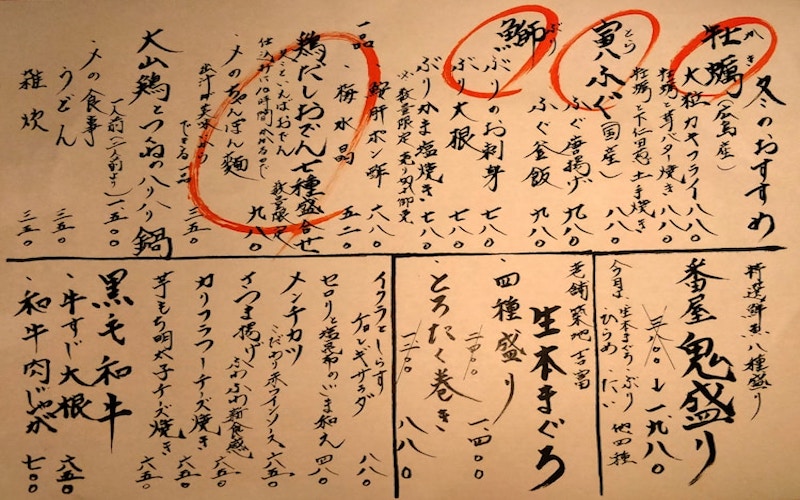 冬のおすすめ
かき
牡蠣(広島産)
・大粒カキフライ 八八〇
・牡蠣と芽バター焼き 八八〇
・牡蠣と下仁田葱 土手焼き 八八〇
とら
寅ふぐ(国産)
・ふぐ唐揚げ 九八〇
・ふぐ釜飯 九八〇
ぶり
鰤
・ぶりのお刺身 七八〇
・ぶり大根 七八〇
・ぶりかま塩焼き 七八〇
※数量限定 売り切れ御免
一品
・鮟肝ポン酢 六八〇
・梅水晶 五二〇
鶏だしおでん七種盛合せ
冬といえばおでん 数量限定
仕込みに10時間かかるので 九八〇
・〆のちゃんぽん麺 三五〇
出汁が美味いから
できる一品
大山鶏とつくねのハリハリ鍋
一人前(二人前より) 一、五〇〇
・〆の食事
うどん 三五〇
雑炊 三五〇
特選鮮魚八種盛り
番屋鬼盛り
三、一八〇 ↓ 一、九八〇
今月は、生本まぐろ・ぶり
ひらめ・たい 他四種
老舗 築地 吉富
生本まぐろ
・四種盛り 二、四〇〇 一、四〇〇
・とろたく巻き 一、二〇〇 八八〇
イクラとしらす
チョレギサラダ 八八〇
セロリと塩昆布のごま和え 四八〇
メンチカツ
こだわり赤ワインソース 六五〇
さつま揚げ ふわふわ新食感 六五〇
カリフラワーチーズ焼き 六五〇
芋もち明太子チーズ焼き 六五〇
黒毛和牛
・牛すじ大根 六五〇
・和牛肉じゃが 七〇〇